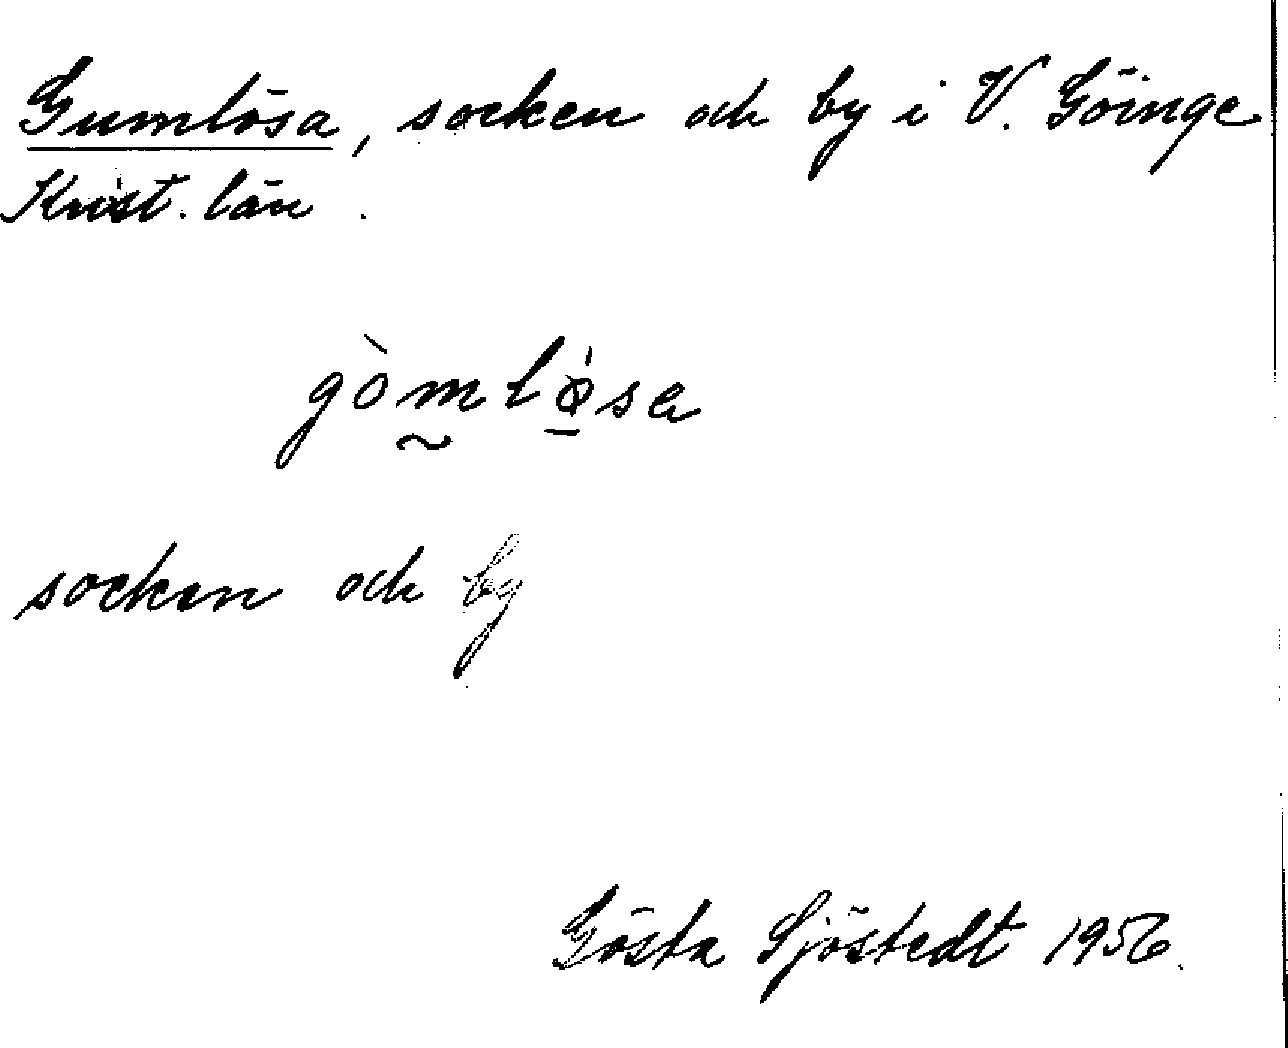 Gumlösa, socken och by i V. Göinge
Krist. län.
gòm̰lǿ̠sa
socken och by
Gösta Sjöstedt 1956.